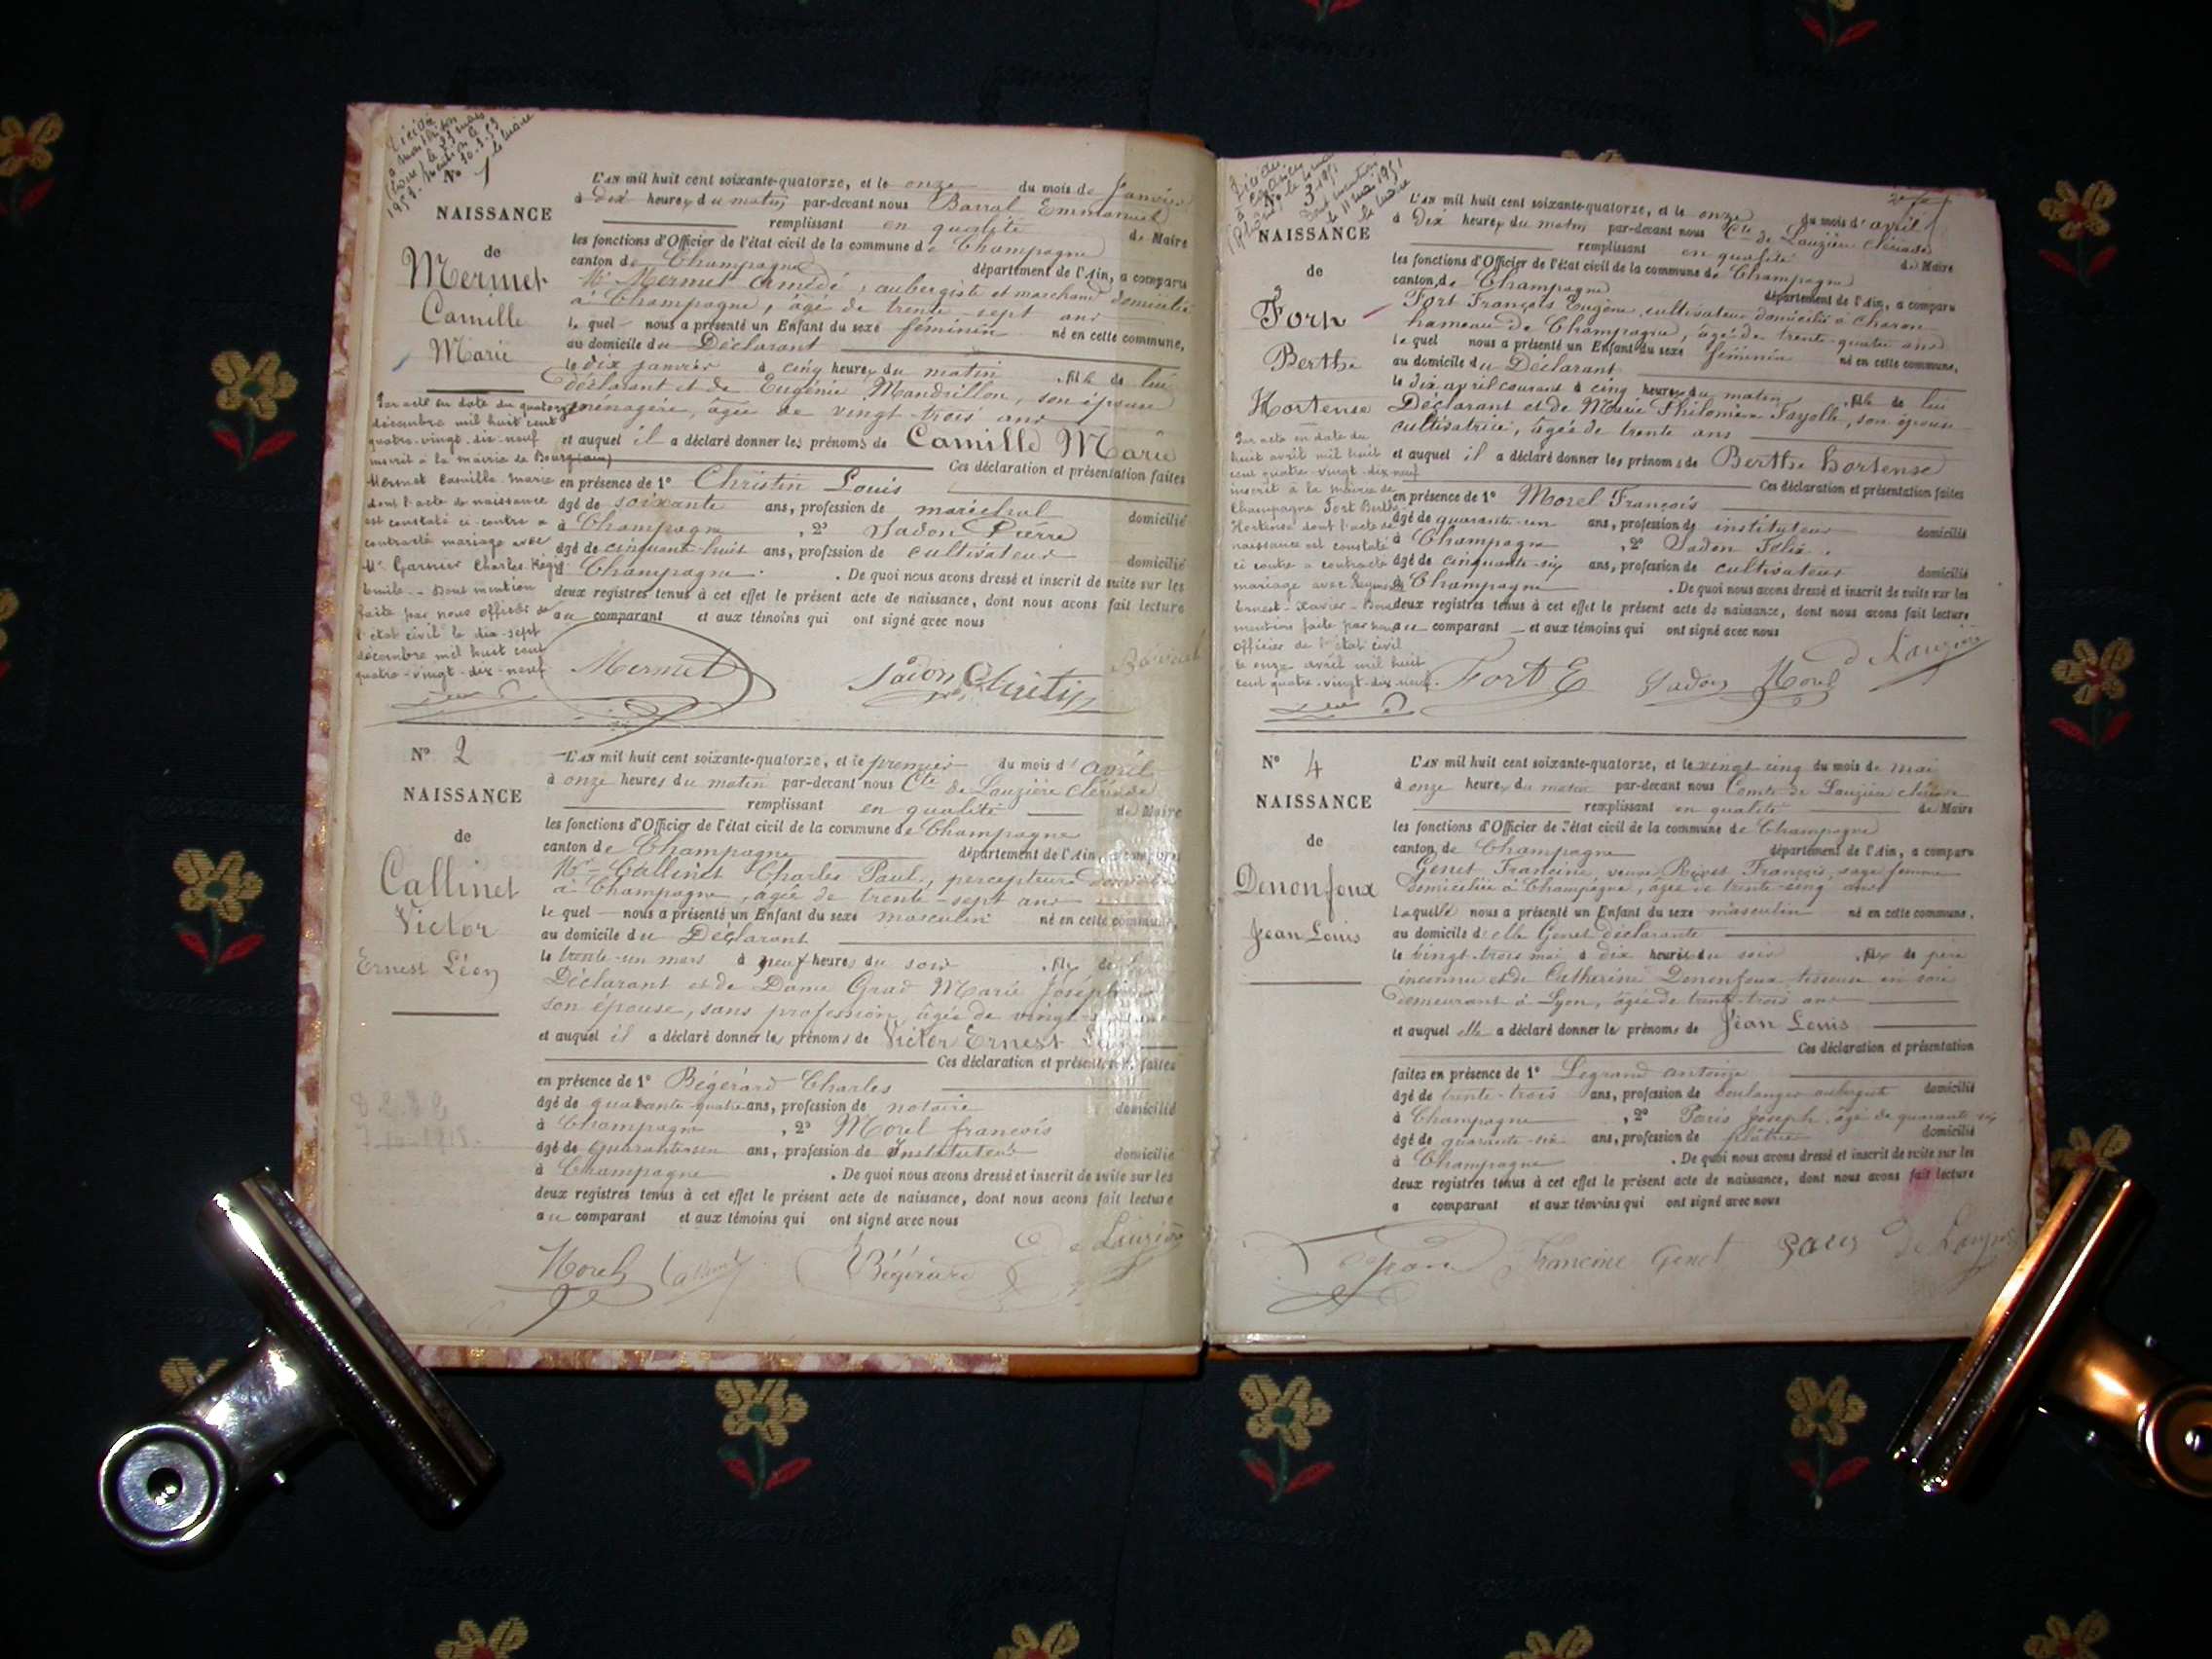 Décédée
à Montbrison
(Loire) le 23 mars
1953. Mention le
30.3.53
le Maire
N° 1
NAISSANCE
de
Mermet
Camille
Marie
L'AN mil huit cent soixante-quatorze, et le onze du mois de Janvier
à dix heures du matin par-devant nous Barral Emmanuel
remplissant en qualité de Maire
les fonctions d'Officier de l'état civil de la commune de Champagne
canton de Champagne département de l'Ain, a comparu
Mr Mermet Amédé, aubergiste et marchand domicilié
à Champagne, âgé de trente-sept ans
le quel nous a présenté un Enfant du sexe féminin né en cette commune,
au domicile du Déclarant
le dix janvier à cinq heures du matin, fille de lui
déclarant et de Eugénie Mandrillon, son épouse
ménagère, âgée de vingt-trois ans
et auquel il a déclaré donner les prénoms de Camille Marie
Ces déclaration et présentation faites
en présence de 1° Christin Louis
âgé de soixante ans, profession de maréchal domicilié
à Champagne, 2° Jadon Pierre
âgé de cinquante huit ans, profession de cultivateur domicilié
Champagne. De quoi nous avons dressé et inscrit de suite sur les
deux registres tenus à cet effet le présent acte de naissance, dont nous avons fait lecture
au comparant et aux témoins qui ont signé avec nous
Par acte en date du quatorze
décembre mil huit cent
quatre-vingt-dix-neuf
inscrit à la mairie de Bourg (Ain)
Mermet Camille Marie
dont l'acte de naissance
est constaté ci-contre a
contracté mariage avec
Mr Garnier Charles Régis
Emile. - Dont mention
faite par nous officier de
l'état civil le dix-sept
décembre mil huit cent
quatre-vingt-dix-neuf
Mermet Jadon Christin Barral
N° 2
NAISSANCE
de
Callinet
Victor
Ernest Léon
L'AN mil huit cent soixante-quatorze, et le premier du mois d'avril
à onze heures du matin par-devant nous Cte de Lauzière Clériade
remplissant en qualité de Maire
les fonctions d'Officier de l'état civil de la commune de Champagne
canton de Champagne département de l'Ain, a comparu
Mr Callinet Charles Paul, percepteur domicilié
à Champagne, âgé de trente-sept ans
le quel nous a présenté un Enfant du sexe masculin né en cette commune,
au domicile du Déclarant
le trente-un mars à neuf heures du soir, fils de lui
Déclarant et de Dame Grad Marie Joséphine
son épouse, sans profession, âgée de vingt
et auquel il a déclaré donner les prénoms de Victor Ernest Léon
Ces déclaration et présentation faites
en présence de 1° Bégérard Charles
âgé de quarante-quatre ans, profession de notaire domicilié
à Champagne, 2° Morel françois
âgé de quarante-un ans, profession de Instituteur domicilié
à Champagne. De quoi nous avons dressé et inscrit de suite sur les
deux registres tenus à cet effet le présent acte de naissance, dont nous avons fait lecture
au comparant et aux témoins qui ont signé avec nous
Morel Callinet Bégérard de Lauzière
Décédée
N° 3
1951
Dont mention
le 11 mai 1951
le Maire
NAISSANCE
de
Fort
Berthe
Hortense
L'AN mil huit cent soixante-quatorze, et le onze du mois d'avril
à dix heures du matin par-devant nous Cte de Lauzière Clériade
remplissant en qualité de Maire
les fonctions d'Officier de l'état civil de la commune de Champagne
canton de Champagne département de l'Ain, a comparu
Fort François Eugène, cultivateur domicilié à Charon
hameau de Champagne, âgé de trente-quatre ans
le quel nous a présenté un Enfant du sexe féminin né en cette commune,
au domicile du Déclarant
le dix avril courant à cinq heures du matin, fille de lui
Déclarant et de Marie Philomène Fayolle, son épouse
cultivatrice, âgée de trente ans
et auquel il a déclaré donner les prénoms de Berthe Hortense
Ces déclaration et présentation faites
en présence de 1° Morel François
âgé de quarante-un ans, profession de instituteur domicilié
à Champagne, 2° Jadon Félix
âgé de cinquante-six ans, profession de cultivateur domicilié
à Champagne. De quoi nous avons dressé et inscrit de suite sur les
deux registres tenus à cet effet le présent acte de naissance, dont nous avons fait lecture
au comparant et aux témoins qui ont signé avec nous
Par acte en date du
huit avril mil huit
cent quatre-vingt-dix-neuf
inscrit à la mairie de
Champagne Fort Berthe
Hortense dont l'acte de
naissance est constaté
ci contre a contracté
mariage avec
Ernest-Xavier - Dont
mention faite par nous
officier de l'état civil
le onze avril mil huit
cent quatre-vingt-dix-neuf.
Fort E Jadon Morel de Lauzière
N° 4
NAISSANCE
de
Denonfoux
Jean Louis
L'AN mil huit cent soixante-quatorze, et le vingt cinq du mois de mai
à onze heures du matin par-devant nous Comte de Lauzière Clériade
remplissant en qualité de Maire
les fonctions d'Officier de l'état civil de la commune de Champagne
canton de Champagne département de l'Ain, a comparu
Genet Francine, veuve Rives François, sage femme
domiciliée à Champagne, âgée de trente-cinq ans
laquelle nous a présenté un Enfant du sexe masculin né en cette commune,
au domicile d'elle Genet déclarante
le vingt-trois mai à dix heures du soir, fils de père
inconnu et de Catherine Denonfoux tisseuse en soie
demeurant à Lyon, âgée de trente-trois ans
et auquel elle a déclaré donner les prénoms de Jean Louis
Ces déclaration et présentation
faites en présence de 1° Legrand antoine
âgé de trente-trois ans, profession de boulanger aubergiste domicilié
à Champagne, 2° Paris Joseph, âgé de quarante six
âgé de quarante-six ans, profession de plâtrier domicilié
à Champagne. De quoi nous avons dressé et inscrit de suite sur les
deux registres tenus à cet effet le présent acte de naissance, dont nous avons fait lecture
a comparant et aux témoins qui ont signé avec nous
Francine Genet Paris de Lauzière